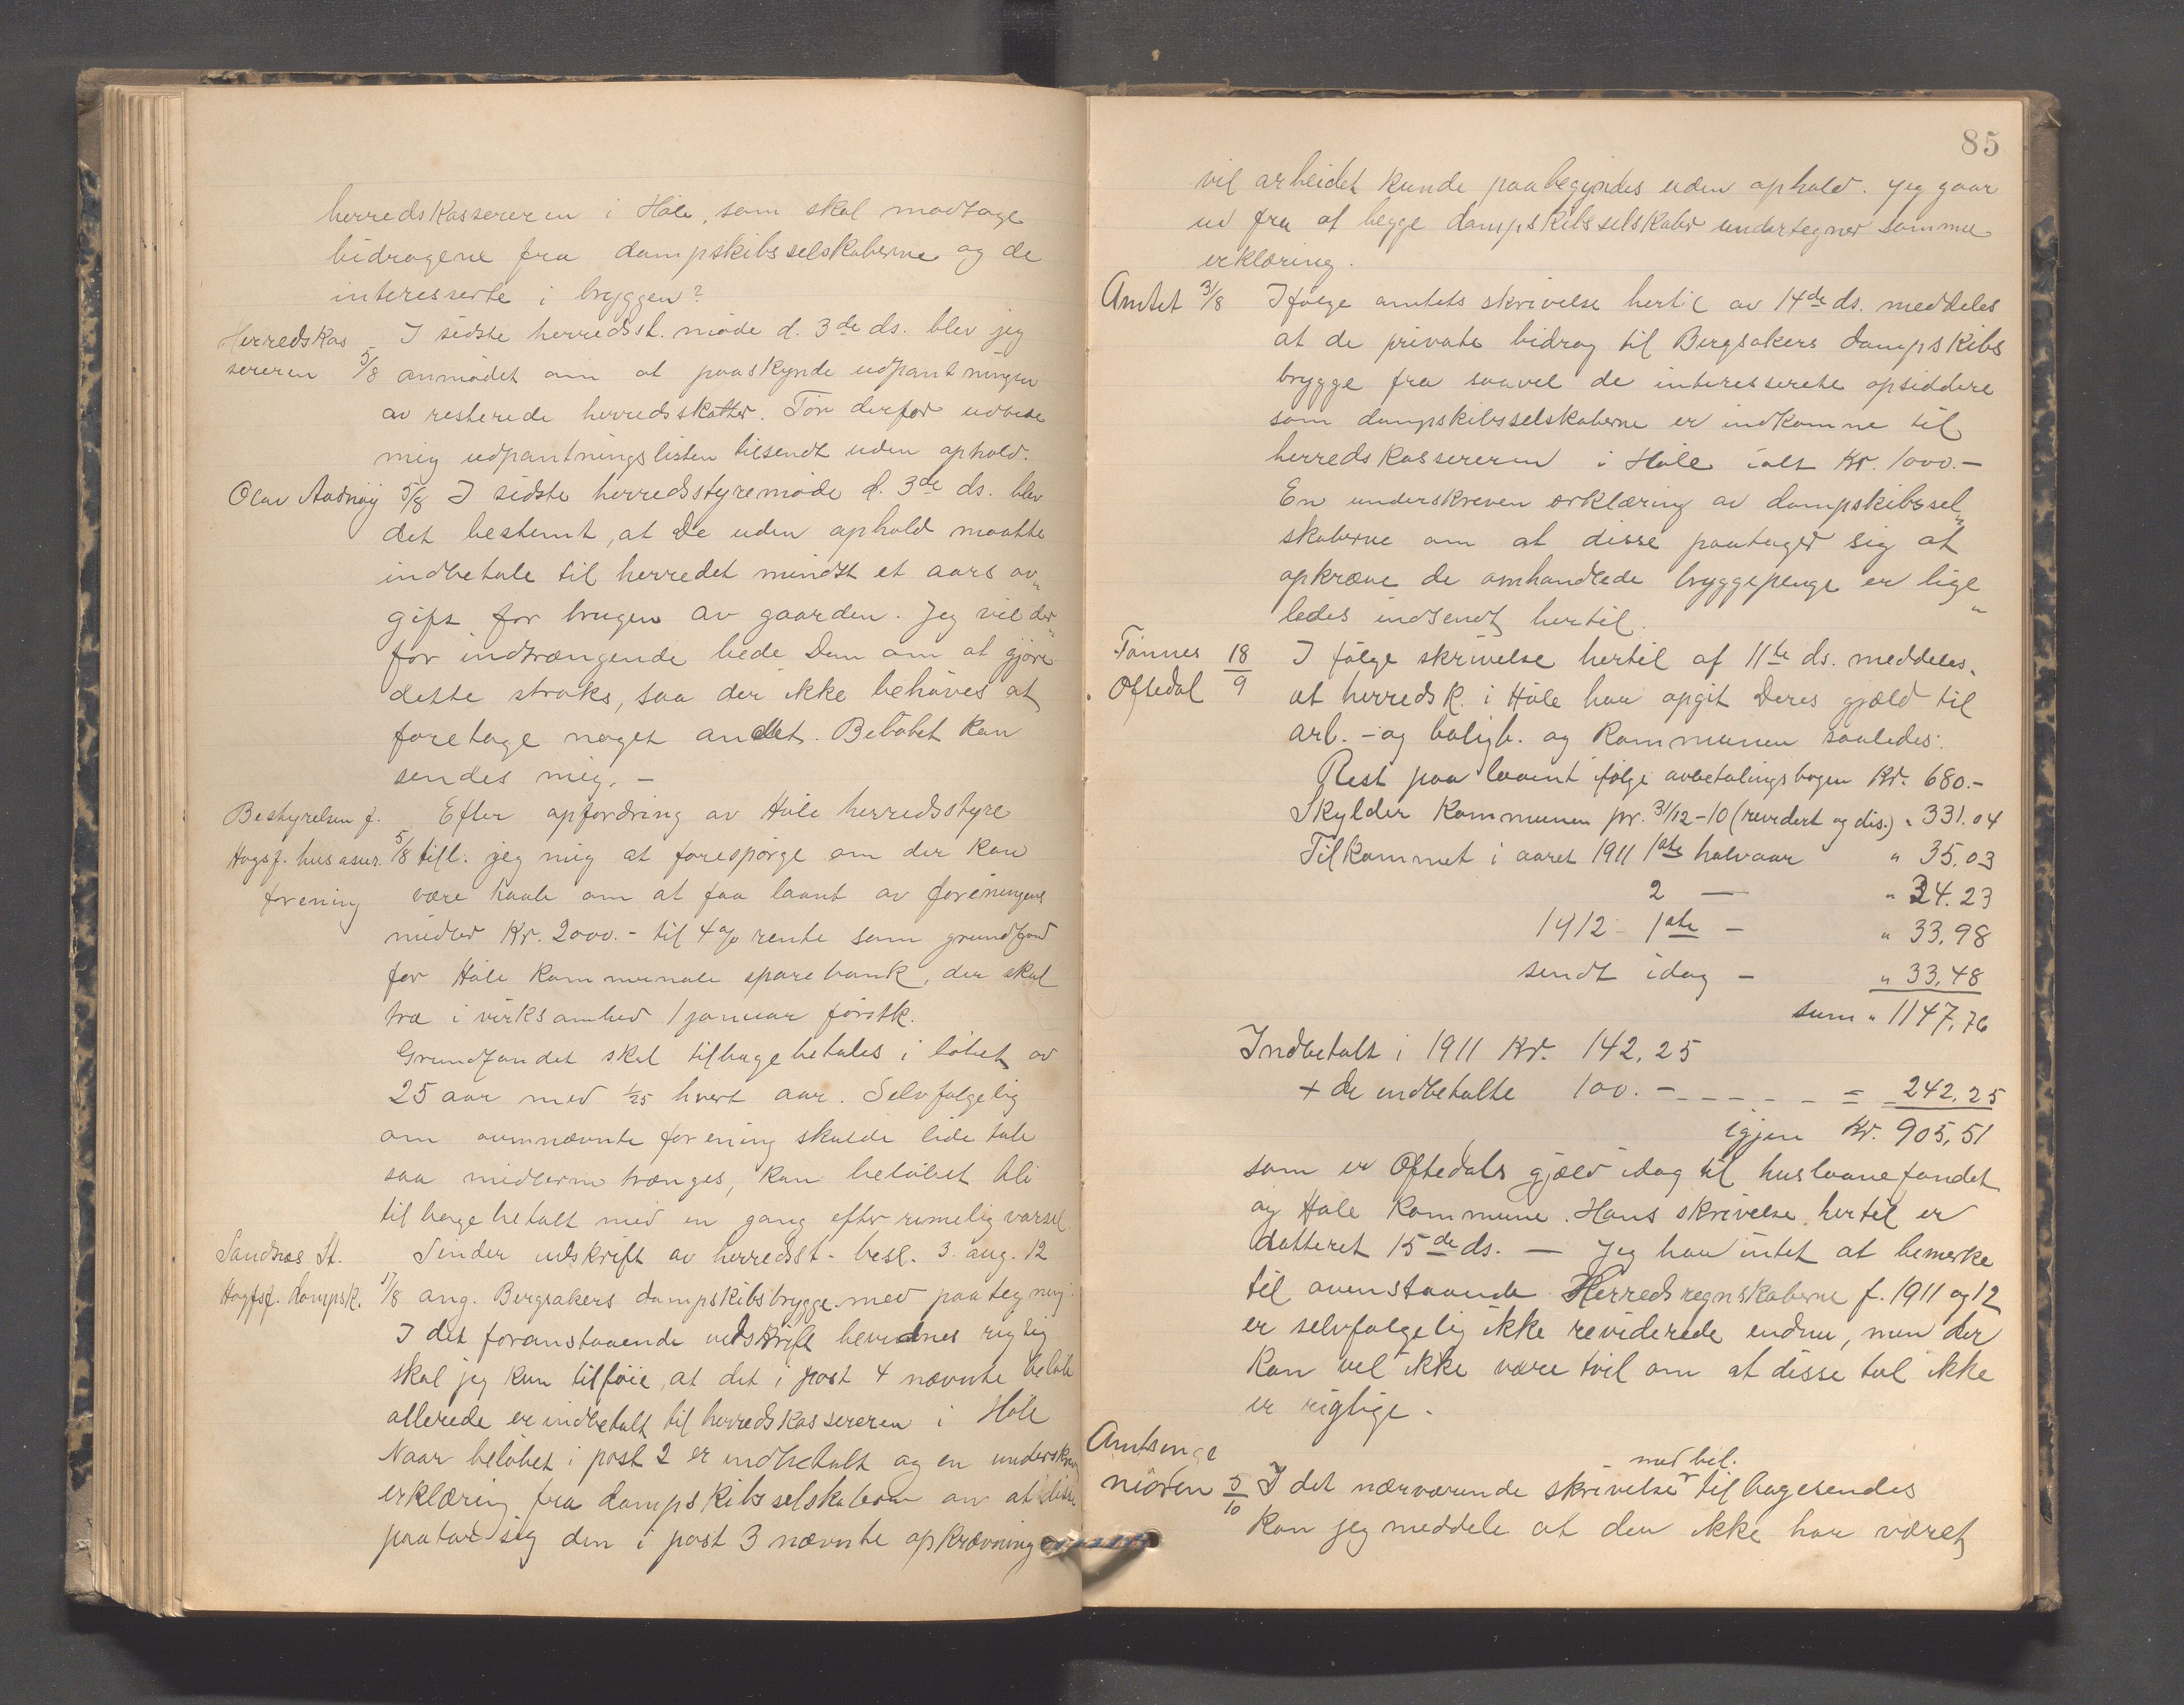 herredskassereren i Høle, som skal modtage
bidragene fra dampskibsselskaberne og de
interesserte i bryggen?
Herredskas- I sidste herredsst. møde d. 3de ds. blev jeg
sereren 5/8 anmodet om at paaskynde udpantningen
av resterede herredsskatter. Tør derfor udbede
mig udpantningslisten tilsendt uden ophold.
Olav Aadnøy 5/8 I sidste herredsstyremøde d. 3de ds. blev
det bestemt, at De uden ophold maatte
indbetale til herredet mindst et aars av„
gift for brugen av gaarden. Jeg vil der„
for indtrængende bede Dem om at gjøre
dette straks, saa der ikke behøves at
foretage noget andet. Beløbet kan
sendes mig. –
Bestyrelsen f. Efter opfordring av Høle herredsstyre
Høgsf. husassur. 5/8 till. jeg mig at forespørge om der kan
forening være haab om at faa laant av foreningens
midler Kr. 2000.- til 4% rente som grundfond
for Høle kommunale sparebank, der skal
træ i virksomhed 1 januar førstk.
Grundfondet skal tilbagebetales i løbet av
25 aar med 1/25 hvert aar. Selvfølgelig
om ovennævnte forening skulde lide tab
saa midlerne trænges, kan beløbet bli
tilbagebetalt med en gang efter rimelig varsel.
Sandnæs St. Sender utskrift av herredsst. besl. 3. aug. 12
Høgsf. dampsk. 17/8 ang. Bergsakers dampskibsbrygge med paategning
I det foranstaaende utskrift bevidnes rigtig
skal jeg kun tilføie, at det i post 4 nævnte beløb
allerede er indbetalt til herredskassereren i Høle
Naar beløbet i post 2 er indbetalt og en underskrev
erklæring fra dampskibsselskaberne om at disse
paatar sig den i post 3 nævnte opkrævning
85
vil arbeidet kunde paabegyndes uden ophold. Jeg gaar
ud fra at begge dampskibsselskaber undertegner samme
erklæring.
Amtet 3/8 Ifølge amtets skrivelse hertil av 14de ds. meddeles
at de private bidrag til Bergsakers dampskibs
brygge fra saavel de interesserte opsiddere
som dampskibsselskaberne er indkomne til
herredskassereren i Høle ialt Kr. 1000.-
En underskreven erklæring av dampskibssel„
skaberne om at disse paatager sig at
opkræve de omhandlede bryggepenge er lige„
ledes indsendt hertil.
Tønnes 18/9 I følge skrivelse hertil af 11te ds. meddeles
Oftedal at herredsk. i Høle har opgit Deres gjæld til
arb.- og boligb. og kommunen saaledes:
Rest paa laanet ifølge avbetalingsbogen Kr. 680.-
Skylder kommunen pr. 31/12-10 (revidert og dis.) " 331.04
Tilkommet i aaret 1911 1ste halvaar " 35.03
2 — " 34.23
1912 - 1ste — " 33.98
sendt idag — " 33.48
sum " 1147.76
Indbetalt i 1911 Kr. 142.25
+ de indbetalte 100.- - - - - - = 242.25
igjen Kr. 905.51
som er Oftedals gjæld idag til huslaanefondet
og Høle kommune. Hans skrivelse hertil er
datteret 15de ds. — Jeg har intet at bemerke
til ovenstaaende. Herredsregnskaberne f. 1911 og 12
er selvfølgelig ikke reviderede endnu, men der
kan vel ikke være tvil om at disse tal ikke
er rigtige.
Amtsinge
niøren 5/10 I det nærværende skrivelse med bil. tilbagesendes
kan jeg meddele at den ikke har været